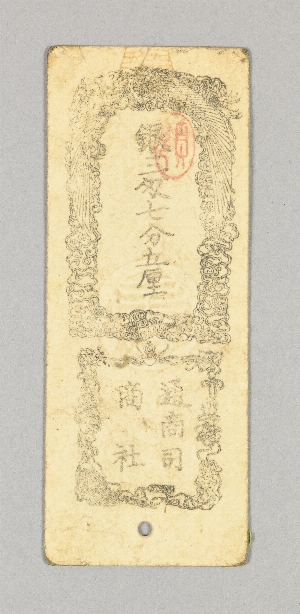 銀三匁七分五厘
通商司
商社